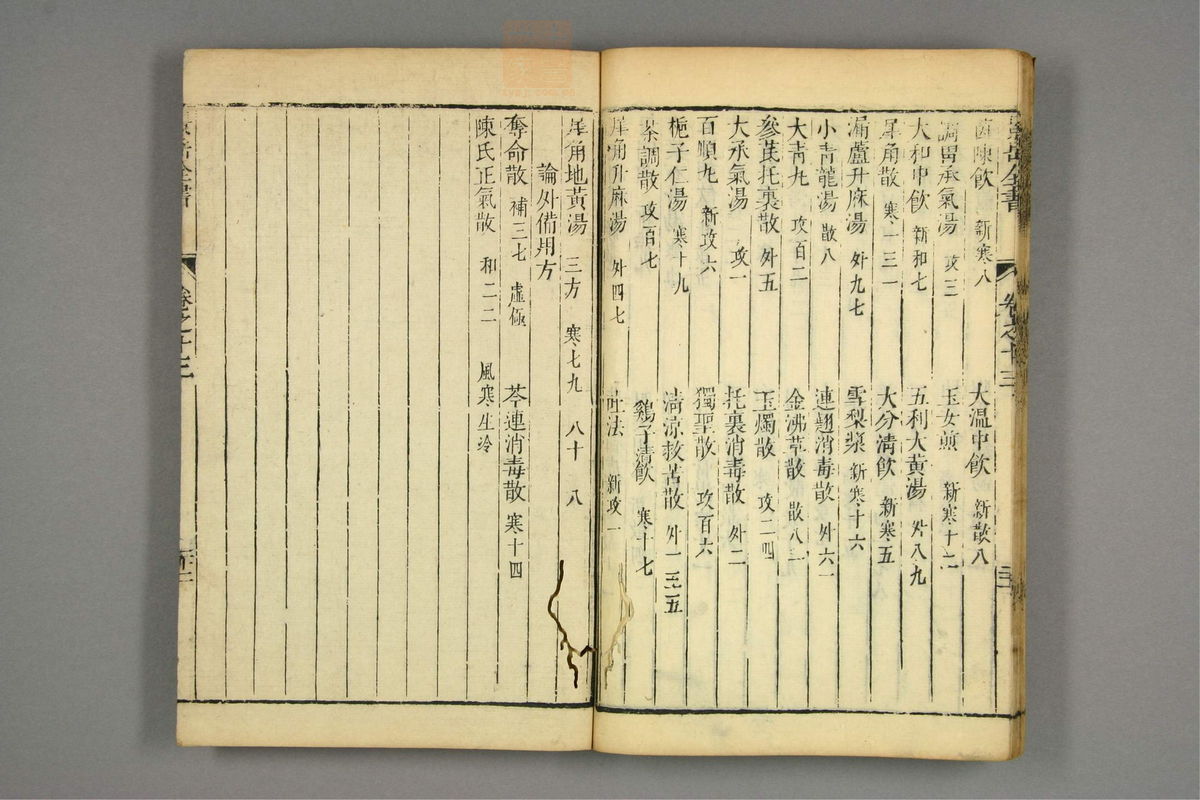 景岳全書 卷之十三
茵陳飲 新寒八 大溫中飲 新散八
調胃承氣湯 攻三 玉女煎 新寒十二
大和中飲 新和七 五利大黃湯 外八九
犀角散 寒一三一 大分清飲 新寒五
漏蘆升麻湯 外九七 雪梨漿 新寒十六
小青龍湯 散八 連翹消毒散 外六一
大青丸 攻百二 金沸草散 散八一
參芪托裏散 外五 玉燭散 攻二四
大承氣湯 攻一 托裏消毒散 外二
百順丸 新攻六 獨聖散 攻百六
梔子仁湯 寒十九 清涼救苦散 外一三五
茶調散 攻百七 鷄子清飲 寒十七
犀角升麻湯 外四七 吐法 新攻一
犀角地黃湯 三方 寒七九 八十 八
論外備用方
奪命散 補三七 虛極 芩連消毒散 寒十四
陳氏正氣散 和二二 風寒生冷
景岳全書 卷之十三